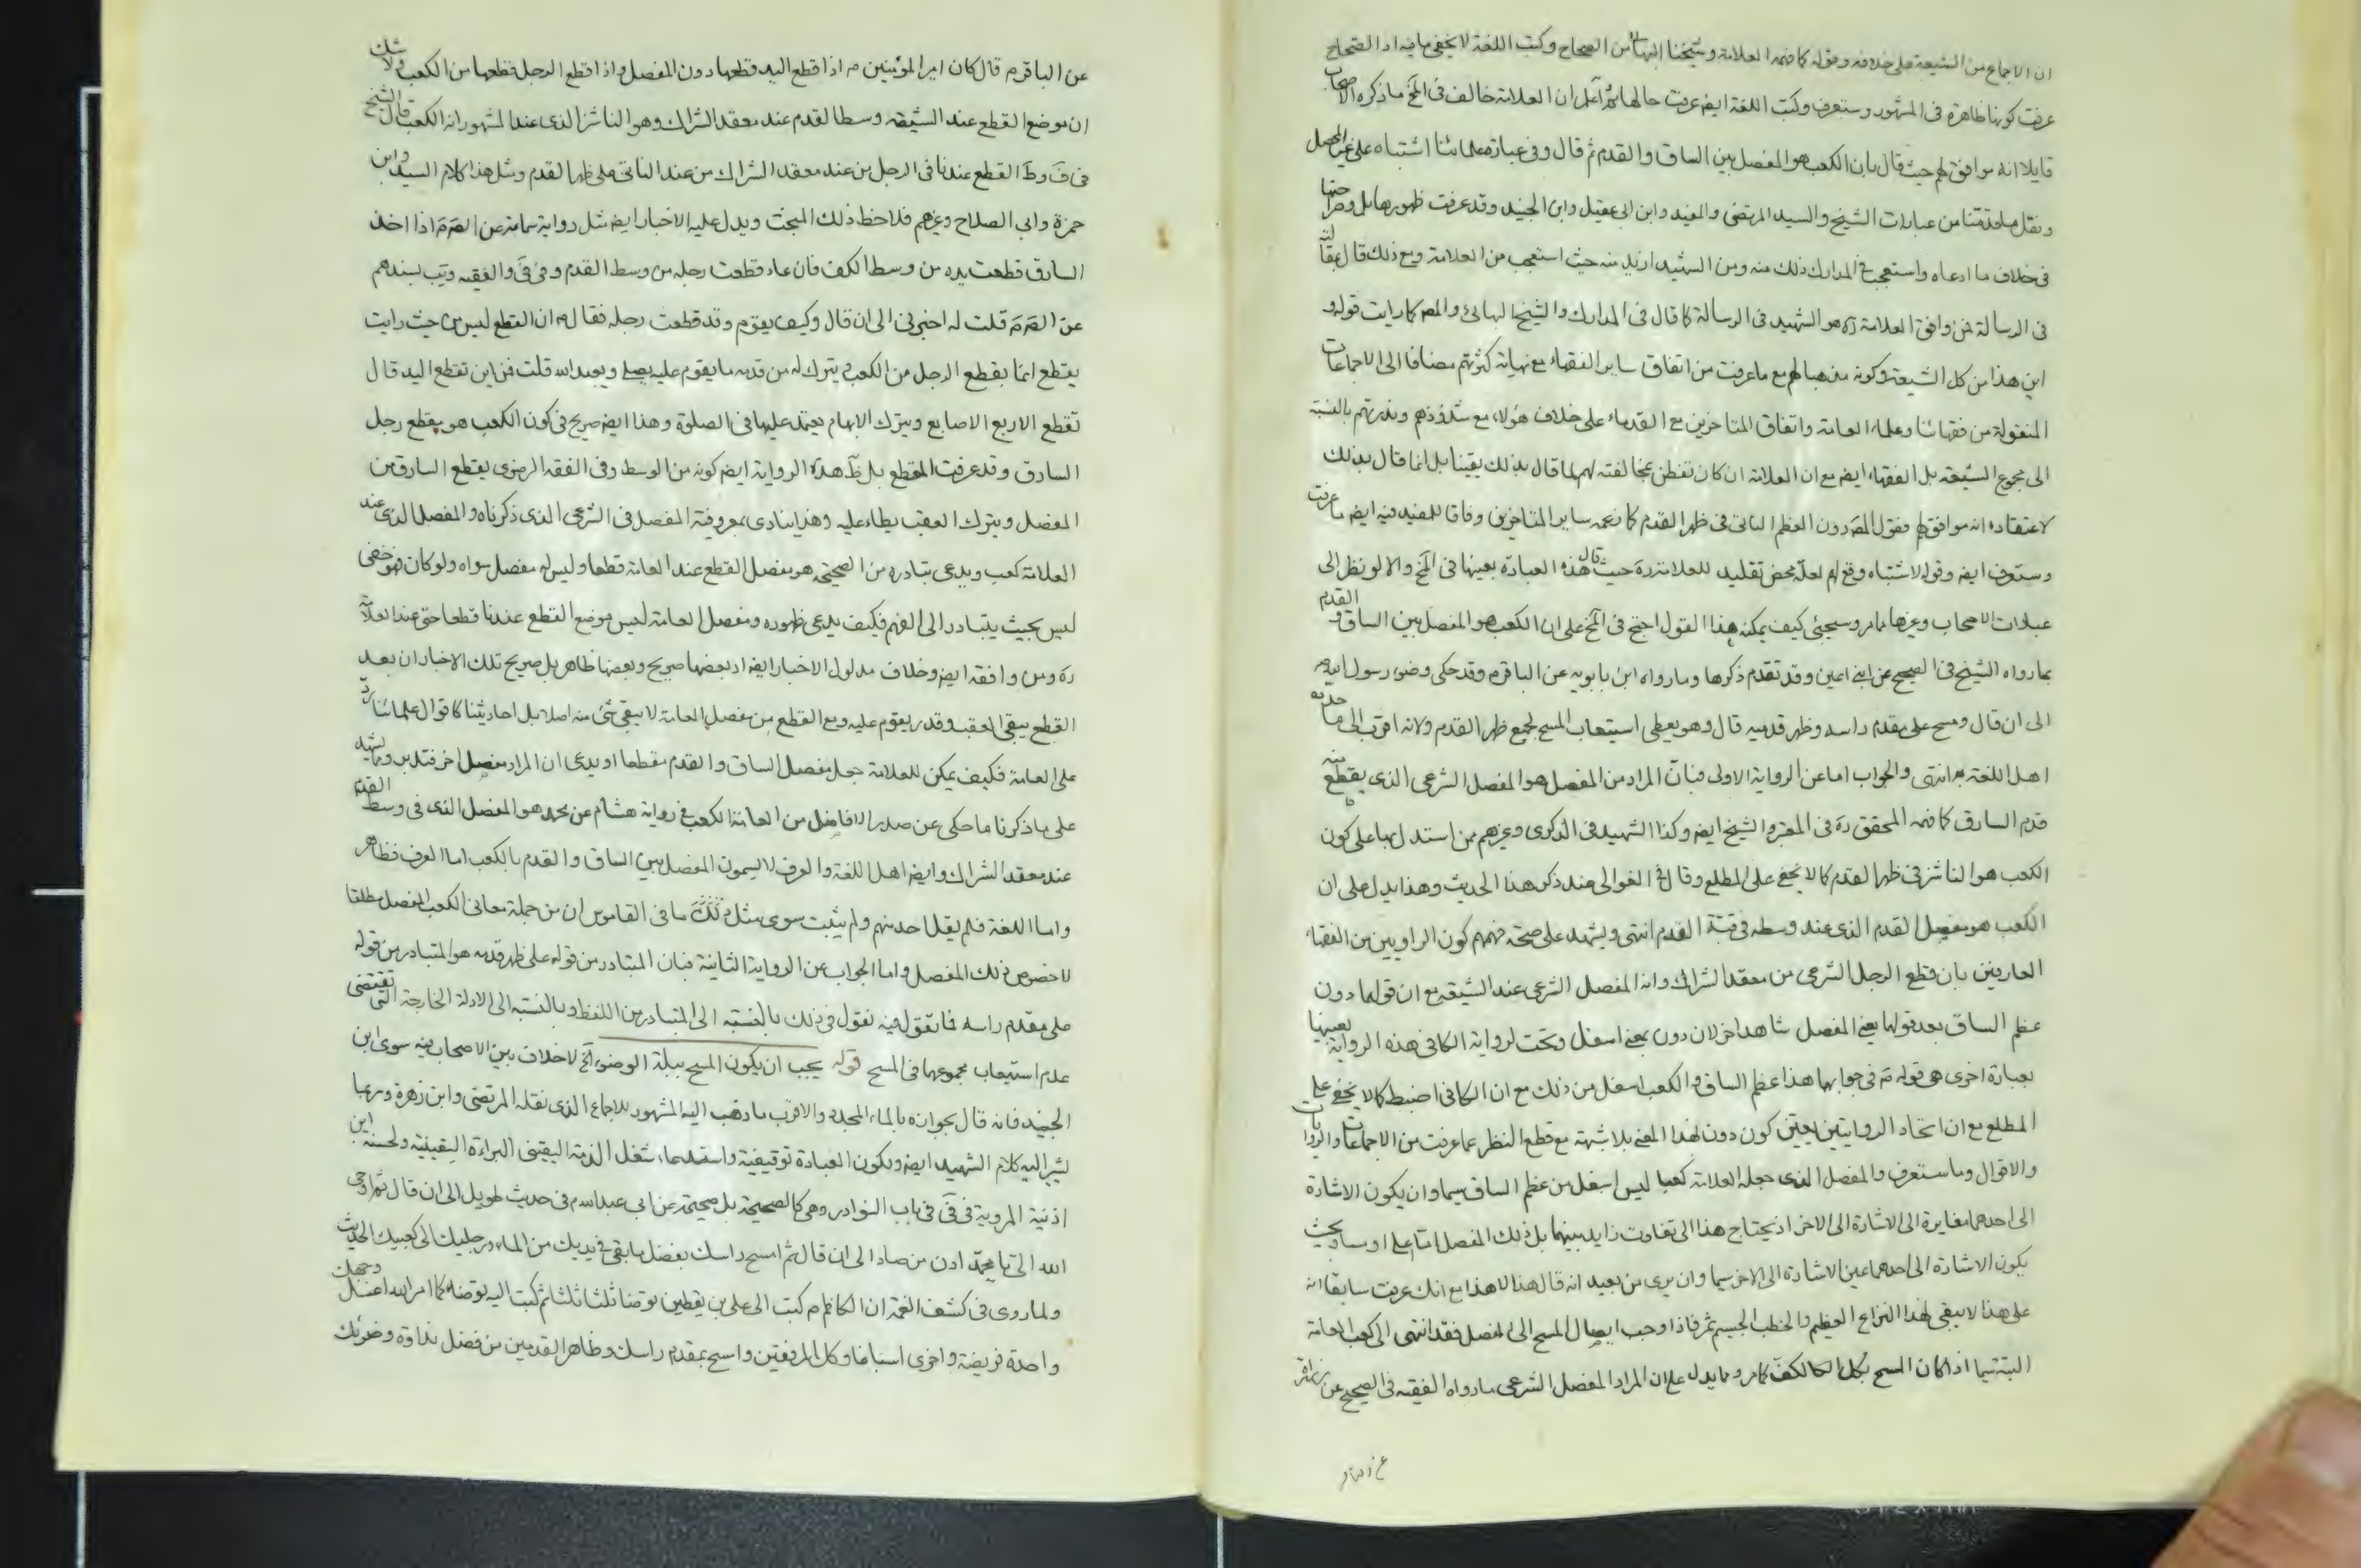 ان الاجماع من الشيعة على خلافه وقوله كما فهمه العلامة وشيخنا البهائى من الصحاح وكتب اللغة لا يخفى ما فيه اذ الصحاح
عرفت كونها ظاهرة فى المشهور وستعرف وكتب اللغة ايض عرفت حالها ثم اعلم ان العلامة خالف فى المخ ما ذكره الاصحاب
قايلا انه موافق لهم حيث قال بان الكعب هو المفصل بين الساق والقدم ثم قال وفى عبارة علمائنا اشتباه على غير المحصل
ونقل ما قدمنا من عبارات الشيخ والسيد المرتضى والمفيد وابن ابى عقيل وابن الجنيد وقد عرفت ظهورها بل وصراحتها
فى خلاف ما ادعاه واستعجب فى المدارك ذلك منه ومن الشهيد ازيد منه حيث استعجب من العلامة ومع ذلك قال بمقالته
فى الرسالة فمن وافق العلامة ره هو الشهيد فى الرسالة كما قال فى المدارك والشيخ البهائى والمص كما رايت قوله و
اين هذا من كل الشيعة وكونه مذهبا لهم مع ما عرفت من اتفاق ساير الفقهاء مع نهاية كثرتهم مضافا الى الاجماعات
المنقولة من فقهائنا وعلماء العامة واتفاق المتاخرين مع القدماء على خلاف هؤلاء مع شذوذهم وندرتهم بالنسبة
الى مجموع الشيعة بل الفقهاء ايض مع ان العلامة ان كان تفطن بمخالفته لهم لما قال بذلك يقينا بل انما قال بذلك
لاعتقاده انه موافق لهم فقول المص دون العظم الناتى فى ظهر القدم كما زعمه ساير المتاخرين وفاقا للمفيد فيه ايض ما عرفت
وستعرف ايض وقوله لاشتباه وقع لهم لعله محض تقليد للعلامة ره حيث قال هذه العبارة بعينها فى المخ والا لو نظر الى
عبارات الاصحاب وغيرها مما مر وسيجئى كيف يمكنه هذا القول احتج فى المخ على ان الكعب هو المفصل بين الساق والقدم
بما رواه الشيخ فى الصحيح عن ابنى اعين وقد تقدم ذكرها وما رواه ابن بابويه عن الباقر م وقد حكى وضوء رسول الله ص
الى ان قال ومسح على مقدم راسه وظهر قدميه قال وهو يعطى استيعاب المسح لجميع ظهر القدم ولانه اقرب الى ما حدده
اهل اللغة به انتهى والجواب اما عن الرواية الاولى فبان المراد من المفصل هو المفصل الشرعى الذى يقطع منه
قدم السارق كما فهمه المحقق ره فى المعتبر والشيخ ايض وكذا الشهيد فى الذكرى وغيرهم ممن استدل بها على كون
الكعب هو الناشز فى ظهر القدم كما لا يخفى على المطلع وقال فى الغوالى عند ذكر هذا الحديث وهذا يدل على ان
الكعب هو مفصل القدم الذى عند وسطه فى قبة القدم انتهى ويشهد على صحة فهمهم كون الراويين من الفقهاء
العارفين بان قطع الرجل الشرعى من معقد الشراك وانه المفصل الشرعى عند الشيعة مع ان قولهما دون
عظم الساق بعد قولهما يعنى المفصل شاهد اخر لان دون بمعنى اسفل وتحت لرواية الكافى هذه الرواية بعينها
بعبارة اخرى هى قوله م فى جوابهما هذا عظم الساق والكعب اسفل من ذلك مع ان الكافى اضبط كما لا يخفى على
المطلع مع ان اتحاد الروايتين يعين كون دون لهذا المعنى بلا شبهة مع قطع النظر عما عرفت من الاجماعات والروايات
والاقوال وما ستعرف والمفصل الذى جعله العلامة كعبا ليس اسفل من عظم الساق سيما وان يكون الاشارة
الى احدهما مغايرة الى الاشارة الى الاخر اذ يحتاج هذا الى تفاوت زايد بينهما بل ذلك المفصل اما على او مساو بحيث
يكون الاشارة الى احدهما عين الاشارة الى الاخر سيما وان يرى من بعيد انه قال هذا لا هذا مع انك عرفت سابقا انه
على هذا لا يبقى لهذا النزاع العظيم والخطب الجسيم ثمر فاذا وجب ايصال المسح الى المفصل فقد انتهى الى كعب العامة
البتة سيما اذا كان المسح بكل الكف كما مر ومما يدل على ان المراد المفصل الشرعى ما رواه الفقيه فى الصحيح عن زرارة
عن الباقر م قال كان امير المؤمنين م اذا قطع اليد قطعها دون المفصل واذا قطع الرجل قطعها من الكعب ولا شك
ان موضع القطع عند الشيعة وسط القدم عند معقد الشراك وهو الناشز الذى عند المشهور انه الكعب قال الشيخ
فى ف وط القطع عندنا فى الرجل من عند معقد الشراك من عند الناتى على ظهر القدم ومثل هذا كلام السيد وابن
حمزة وابى الصلاح وغيرهم فلاحظ ذلك المبحث ويدل عليه الاخبار ايض مثل رواية سماعة عن الص م اذا اخذ
السارق قطعت يده من وسط الكف فان عاد قطعت رجله من وسط القدم وفى فى والفقيه ويب بسندهم
عن الص م قلت له اخبرنى الى ان قال وكيف يقوم وقد قطعت رجله فقال م ان القطع ليس من حيث رايت
يقطع انما يقطع الرجل من الكعب ويترك له من قدمه ما يقوم عليه يصلى ويعبد الله قلت فمن اين تقطع اليد قال
تقطع الاربع الاصابع ويترك الابهام يعتمد عليها فى الصلوة وهذا ايض صريح فى كون الكعب هو يقطع رجل
السارق وقد عرفت المقطع بل ظ هذه الرواية ايض كونه من الوسط وفى الفقه الرضوى يقطع السارق من
المفصل ويترك العقب يطاء عليه وهذا ينادى بمعروفية المفصل فى الشرعى الذى ذكرناه والمفصل الذى عند
العلامة كعب ويدعى تبادره من الصحيحة هو مفصل القطع عند العامة قطعا وليس له مفصل سواه ولو كان فهو خفى
ليس بحيث يتبادر الى الفهم فكيف يدعى ظهوره ومفصل العامة ليس موضع القطع عندنا قطعا حتى عند العلامة
ره ومن وافقه ايض وخلاف مدلول الاخبار ايض اذ بعضها صريح وبعضها ظاهر بل صريح تلك الاخبار ان بعد
القطع يبقى العقب وقدر يقوم عليه ومع القطع من مفصل العامة لا يبقى شئ منه اصلا بل احاديثنا كاقوال علمائنا رد
على العامة فكيف يمكن للعلامة جعل مفصل الساق والقدم مقطعا او يدعى ان المراد مفصل اخر فتدبر ومما يشهد
على ما ذكرنا ما حكى عن صدر الافاضل من العامة الكعب فى رواية هشام عن محمد هو المفصل الذى فى وسط القدم
عند معقد الشراك وايض اهل اللغة والعرف لا يسمون المفصل بين الساق والقدم بالكعب اما العرف فظاهر
واما اللغة فلم يقل احد منهم ولم يثبت سوى مثل ذلك ما فى القاموس ان من جملة معانى الكعب المفصل مطلقا
لا خصوص ذلك المفصل واما الجواب عن الرواية الثانية فبان المتبادر من قوله على ظهر قدميه هو المتبادر من قوله
على مقدم راسه فما تقول فيه نقول فى ذلك بالنسبة الى المتبادر من اللفظ وبالنسبة الى الادلة الخارجة التى تقتضى
عدم استيعاب مجموعها فى المسح قوله يجب ان يكون المسح ببلة الوضوء الخ لا خلاف بين الاصحاب فيه سوى ابن
الجنيد فانه قال بجوازه بالماء المجدد والاقرب ما ذهب اليه المشهور للاجماع الذى نقله المرتضى وابن زهرة وربما
يشير اليه كلام الشهيد ايض ويكون العبادة توقيفية واستدعاء شغل الذمة اليقينى البراءة اليقينية ولحسنة ابن
اذنية المروية فى فى فى باب النوادر وهى كالصحيحة بل صحيحة عن ابى عبد الله م فى حديث طويل الى ان قال ثم اوحى
الله الى يا محمد ادن من صاد الى ان قال ثم امسح راسك بفضل ما بقى فى يديك من الماء ورجليك الى كعبيك الحديث
ولما روى فى كشف الغمة ان الكاظم م كتب الى على بن يقطين توضا ثلثا ثلثا ثم كتب اليه توضا كما امر الله اغسل وجهك
واحدة فريضة واخرى اسباغا وكل المرفقين وامسح بمقدم راسك وظاهر القدمين من فضل نداوة وضوئك